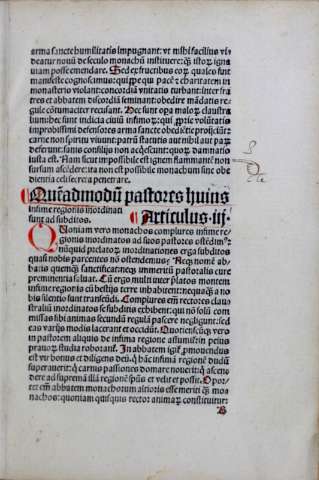 arma sancte humilitatis impugnant: vt mihi facilius vi⸗
deatur nouū de seculo monachū instituere: q̄ istoꝝ igna
uiam posse emendare. Sed ex fructibus eoꝝ quales sunt
manifeste cognoscimus: qui ꝓpe qui pacē ⁊ charitatem in
monasterio violant: concordiā vnitatis turbant: inter fra
tres et abbatem discordiā seminant: obedire mādatis re⸗
gule cōtumaciter recusant. De sunt opa maloꝝ claustra
lium: hec sunt indicia ciuiū infimoꝝ: qui ꝓprie volūtatis
improbissimi defensores arma sancte obediētie proijciūt:
carne non spiritu viuunt: patrū statutis aut nihil aut par
defertur
iusta est. Nam sicut impossibile est ignem flammante nō
sursum ascēdere: ita non est possibile monachum sine obe
dientia celi secreta penetrare.
Quēadmodū pastores huius
infime regionis inordinati
sunt ad subditos. Articulus. iij.
Quoniam vero monachos complures infime re⸗
gionis inordinatos ad suos pastores ostēdimꝰ:
nūquid prelatoꝝ inordinationes erga subditos
quasi nobis parcentes nō ostendemus? Neqꝫ nomē ab
batis quemqꝫ sanctificat: neqꝫ immeritū pastoralis cure
preeminentia saluat. Cū ergo multi inter platos montem
infime regionis cū bestijs terre inhabitent: nequaqꝫ a no
bis silentio sunt transeūdi. Complures em̄ rectores clau⸗
straliū inordinatos se subditis exhibent: qui nō solū com
missas sibi animas secundū regulā pascere negligunt: sed
eas varijs modis lacerant et occidūt. Quotienscūqꝫ vero
in pastorem aliquis de infima regione assumitur
priuatorum studia roborant. In abbatem igitꝛ ꝓmouendus
est vir bonus et diligens deū: q̄ hāc infimā regionē dudū
superauerit: q̄ carnis passiones domare nouerit: q̄ ascen⸗
dere ad supremā illā regionē spūs et velit et possit. Opoꝛ⸗
tet em̄ abbatem monachorum altioris esse meriti q̄ mo
nachos: quoniam quisquis rector animaꝝ constituitur: